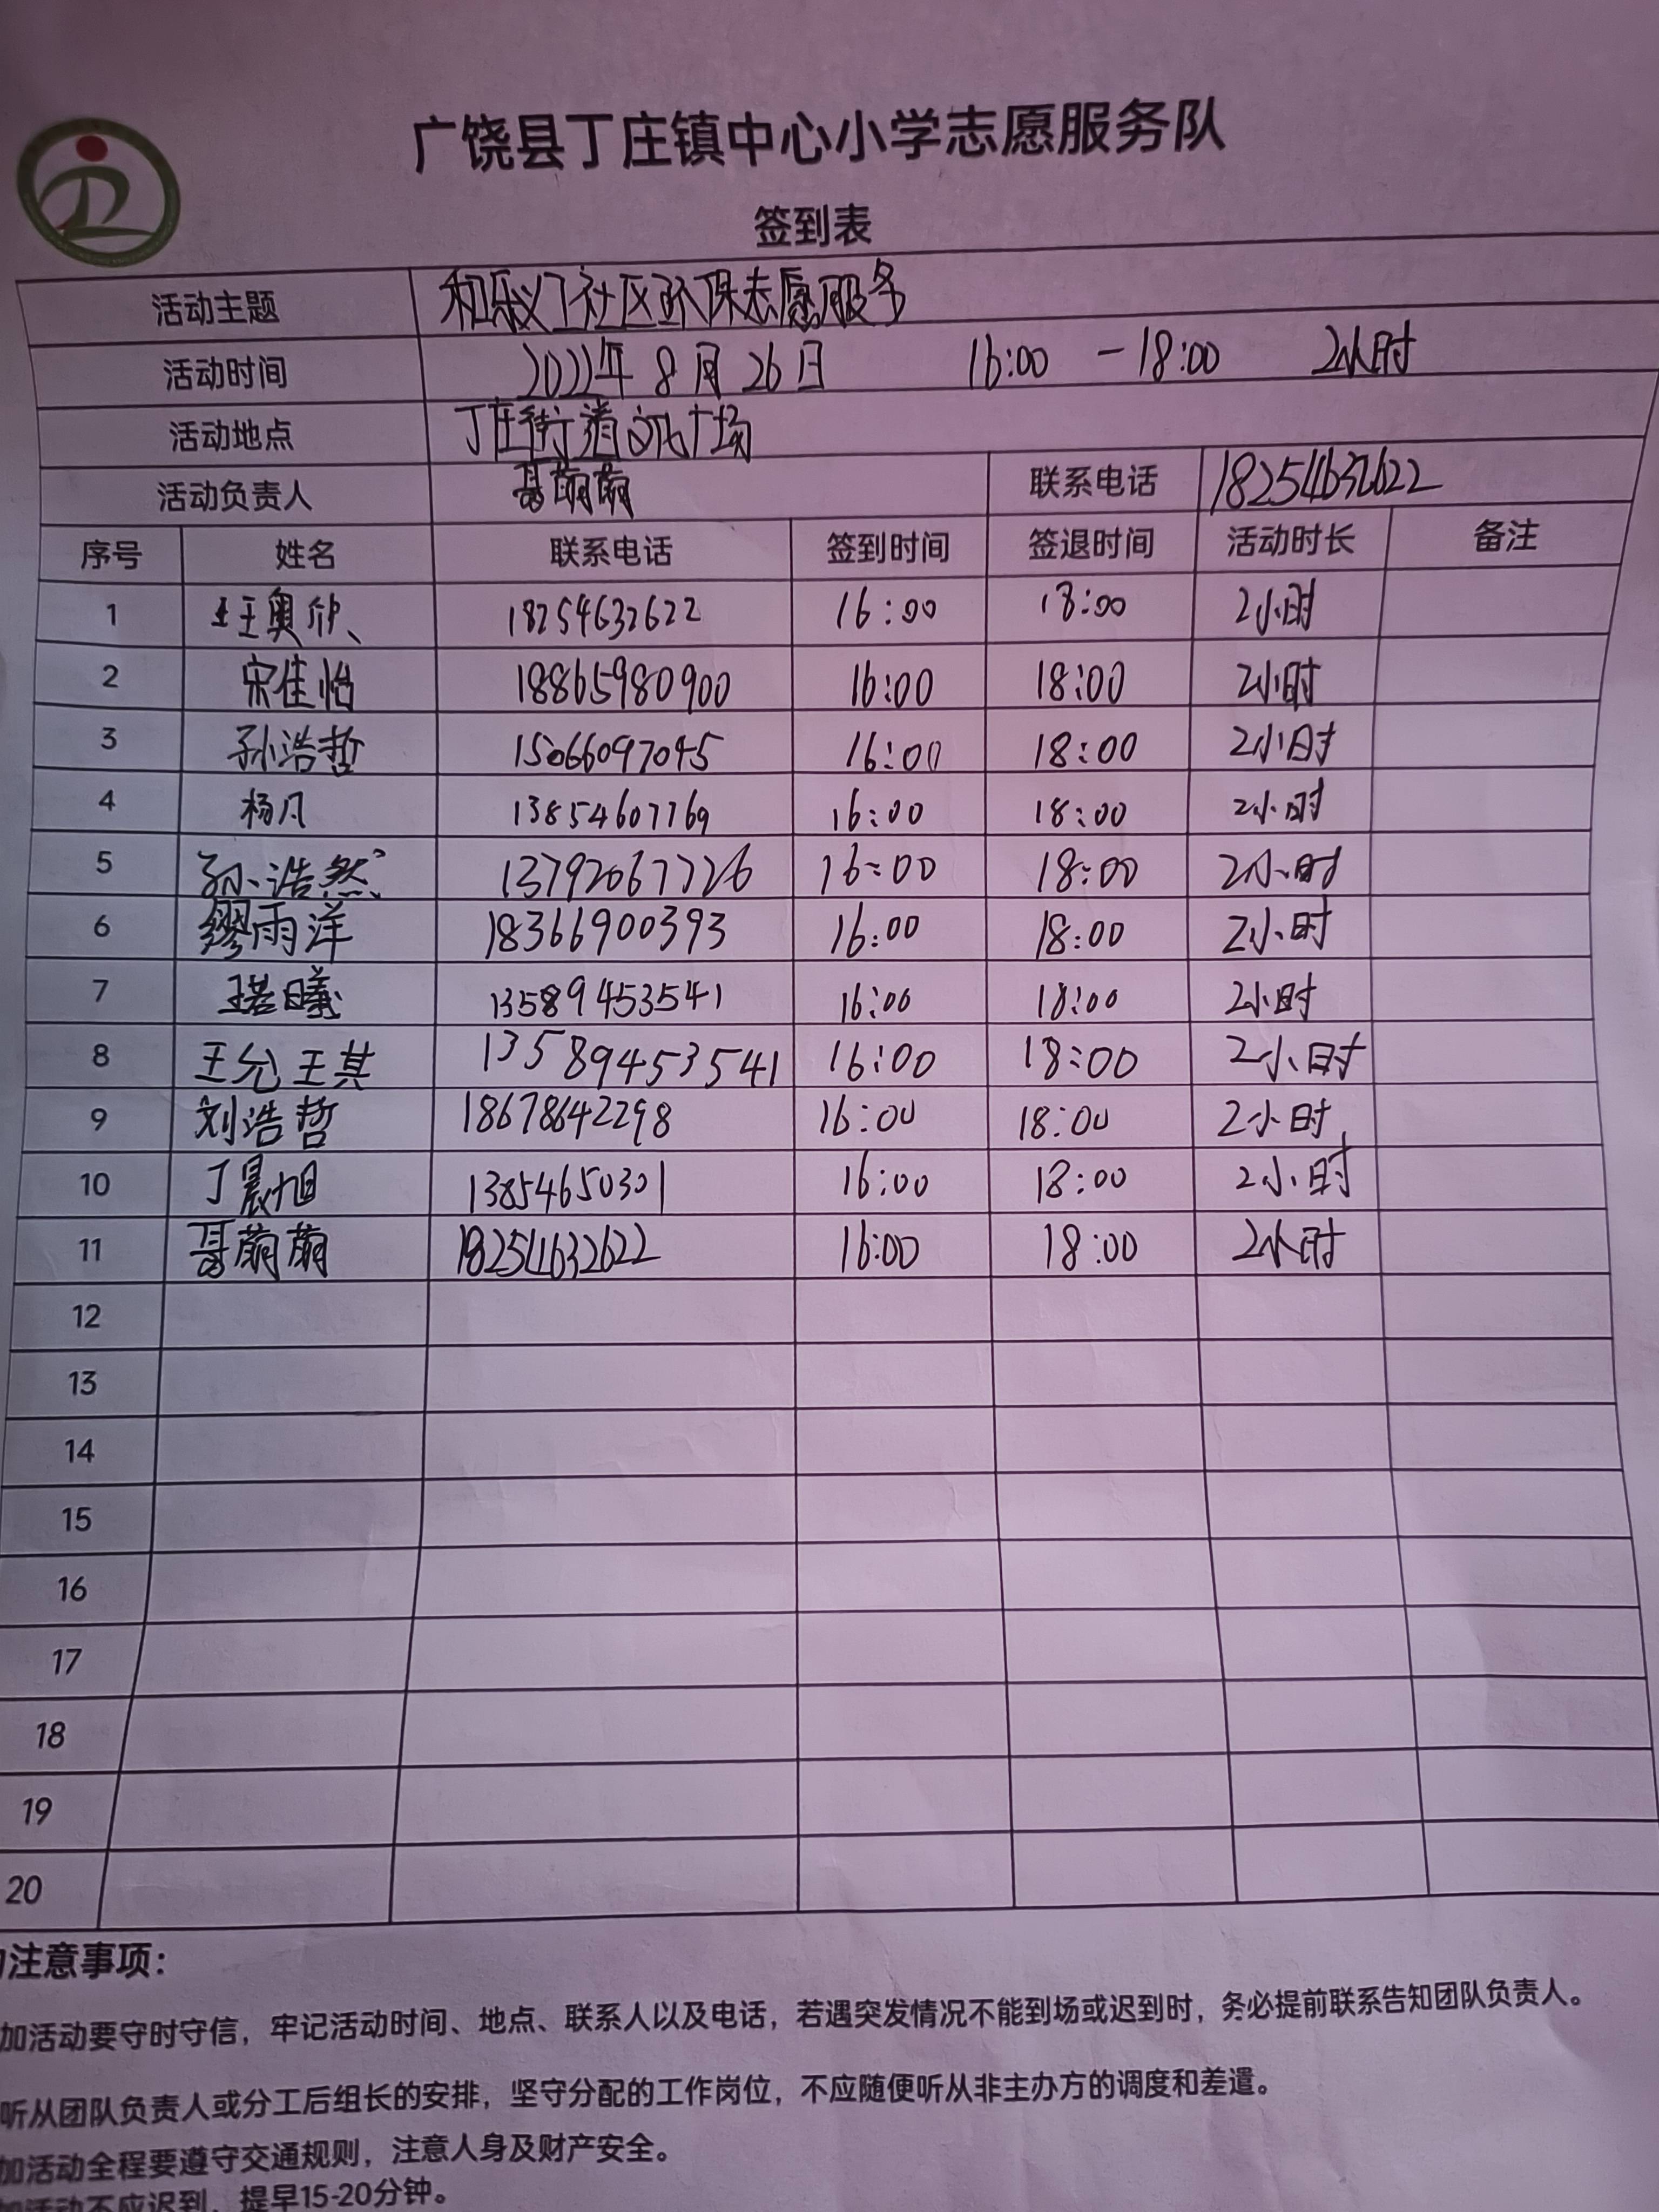 广饶县丁庄镇中心小学志愿服务队
签到表
活动主题 和你义工社区环保志愿服务
活动时间 2022年8月26日 16:00 - 18:00 2小时
活动地点 丁庄街道文化广场
活动负责人 萌萌 联系电话 18254632622
序号 姓名 联系电话 签到时间 签退时间 活动时长 备注
1 王奥 18254632622 16:00 18:00 2小时
2 宋佳怡 18865980900 16:00 18:00 2小时
3 孙浩哲 15066097045 16:00 18:00 2小时
4 杨凡 13854607769 16:00 18:00 2小时
5 孙浩然 13792067726 16:00 18:00 2小时
6 缪雨洋 18366900393 16:00 18:00 2小时
7 曦 13589453541 16:00 18:00 2小时
8 王允琪 13589453541 16:00 18:00 2小时
9 刘浩哲 18678642298 16:00 18:00 2小时
10 丁晨旭 13854650301 16:00 18:00 2小时
11 萌萌 18254632622 16:00 18:00 2小时
12
13
14
15
16
17
18
19
20
注意事项：
加活动要守时守信，牢记活动时间、地点、联系人以及电话，若遇突发情况不能到场或迟到时，务必提前联系告知团队负责人。
听从团队负责人或分工后组长的安排，坚守分配的工作岗位，不应随便听从非主办方的调度和差遣。
加活动全程要遵守交通规则，注意人身及财产安全。
加活动不应迟到，提早15-20分钟。